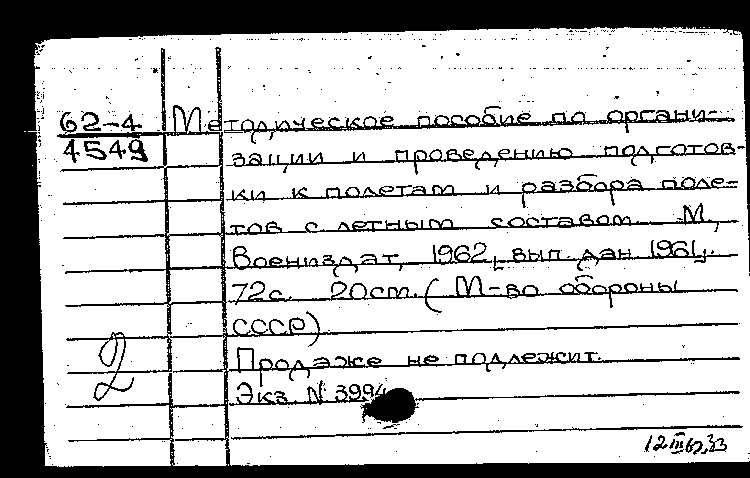 62-4 Методическое пособие по органи-
4549 зации и проведению подготов-
ки к полетам и разбора поле-
тов с летным составом М.,
Воениздат, 1962, вып. дан 1961.
72с. 20cm. (М-во обороны
СССР)
2
Продаже не подлежит.
Экз. N 3994
12 III 62,